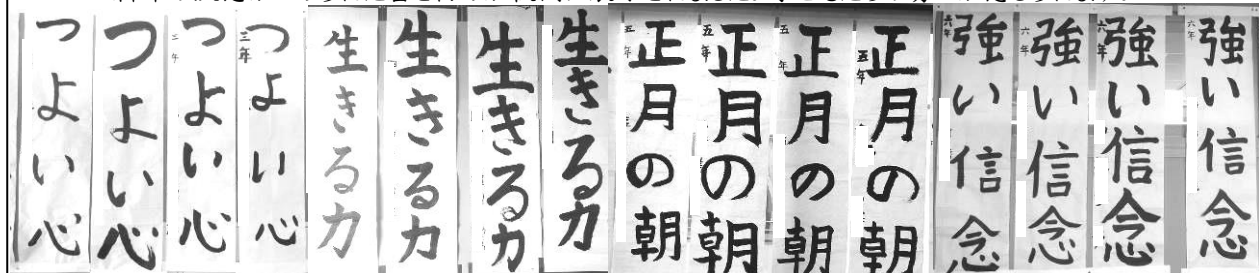 つよい心
つよい心
三年
つよい心
三年
つよい心
生きる力
生きる力
生きる力
生きる力
五年
正月の朝
五年
正月の朝
五年
正月の朝
五年
正月の朝
六年
強い信念
六年
強い信念
六年
強い信念
六年
強い信念